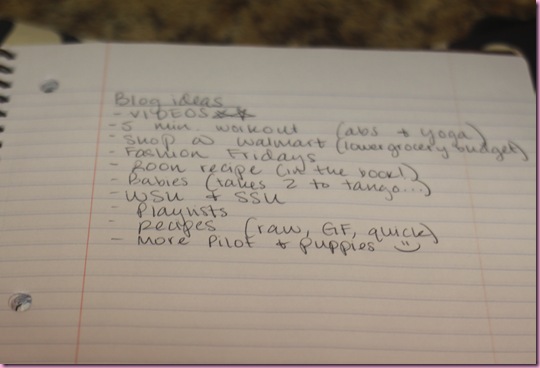 Blog ideas
- VIDEOS
- 5 min. workout (abs + yoga)
- Shop @ walmart (lower grocery budget)
- Fashion Fridays
- Boon recipe (in the book!)
- Babies (takes 2 to tango...)
- WSU & SSU
- Playlists
- Recipes (raw, GF, quick)
- More Pilot & puppies